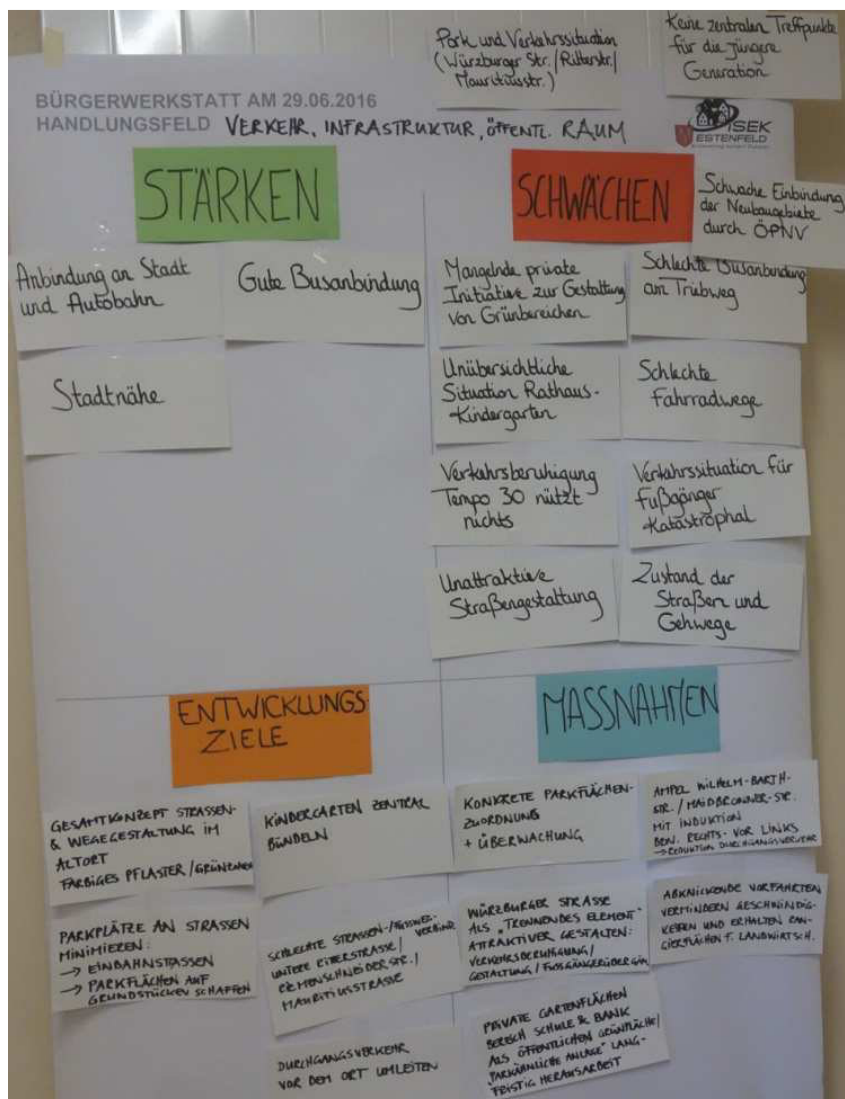 Park und Verkehrssituation
(Würzburger Str./Ritterstr./
Mauritiusstr.)
Keine zentralen Treffpunkte
für die jüngere
Generation
BÜRGERWERKSTATT AM 29.06.2016
HANDLUNGSFELD VERKEHR, INFRASTRUKTUR, ÖFFENTL. RAUM
ISEK
ESTENFELD
STÄRKEN
SCHWÄCHEN
Schwache Einbindung
der Neubaugebiete
durch ÖPNV
Anbindung an Stadt
und Autobahn
Gute Busanbindung
Stadtnähe
Mangelnde private
Initiative zur Gestaltung
von Grünbereichen
Schlechte Busanbindung
am Triebweg
Unübersichtliche
Situation Rathaus-
Kindergarten
Schlechte
Fahrradwege
Verkehrsberuhigung
Tempo 30 nützt
nichts
Verkehrssituation für
Fußgänger
katastrophal
Unattraktive
Straßengestaltung
Zustand der
Straßen und
Gehwege
ENTWICKLUNGS-
ZIELE
MASSNAHMEN
GESAMTKONZEPT STRASSEN-
& WEGEGESTALTUNG IM
ALTORT
FARBIGES PFLASTER /
KINDERGARTEN ZENTRAL
BÜNDELN
PARKPLÄTZE AN STRASSEN
MINIMIEREN:
→ EINBAHNSTRASSEN
→ PARKFLÄCHEN AUF
GRUNDSTÜCKEN SCHAFFEN
SCHLECHTE STRASSEN-/
UNTERE RITTERSTRASSE/
RIEMENSCHNEIDERSTR./
MAURITIUSSTRASSE
DURCHGANGSVERKEHR
VOR DEM ORT UMLEITEN
KONKRETE PARKFLÄCHEN-
ZUORDNUNG
+ ÜBERWACHUNG
AMPEL WILHELM-BARTH-
STR. / MAIDBRONNER-STR.
MIT INDUKTION
BZW. RECHTS-VOR LINKS
→ REDUKTION DURCHGANGSVERKEHR
WÜRZBURGER STRASSE
ALS „TRENNENDES ELEMENT"
ATTRAKTIVER GESTALTEN:
VERKEHRSBERUHIGUNG/
GESTALTUNG / FUSSGÄNGERÜBERGANG
ABKNICKENDE VORFAHRTEN
VERMINDERN GESCHWINDIG-
KEITEN UND ERHALTEN RAN-
GIERFLÄCHEN F. LANDWIRTSCH.
PRIVATE GARTENFLÄCHEN
BEREICH SCHULE & BANK
ALS ÖFFENTLICHEN GRÜNFLÄCHE/
"PARKÄHNLICHE ANLAGE" LANG-
FRISTIG HERAUSARBEIT